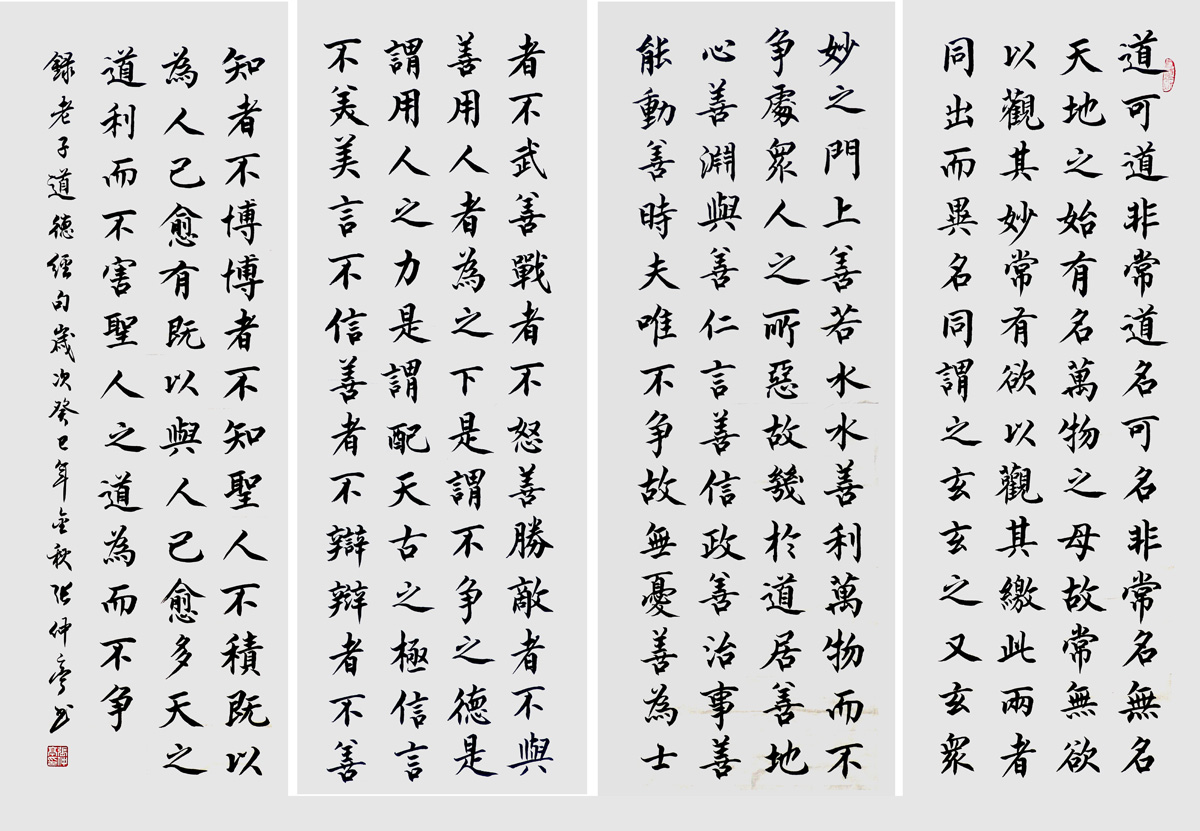 道可道非常道名可名非常名無名
天地之始有名萬物之母故常無欲
以觀其妙常有欲以觀其繳此兩者
同出而異名同謂之玄玄之又玄衆
妙之門上善若水水善利萬物而不
争處衆人之所惡故幾於道居善地
心善淵與善仁言善信政善治事善
能動善時夫唯不争故無憂善為士
者不武善戰者不怒善勝敵者不與
善用人者為之下是謂不争之德是
謂用人之力是謂配天古之極信言
不美美言不信善者不辯辯者不善
知者不博博者不知聖人不積既以
為人己愈有既以與人己愈多天之
道利而不害聖人之道為而不争
録老子道德經句歲次癸巳年金秋张仲亭书